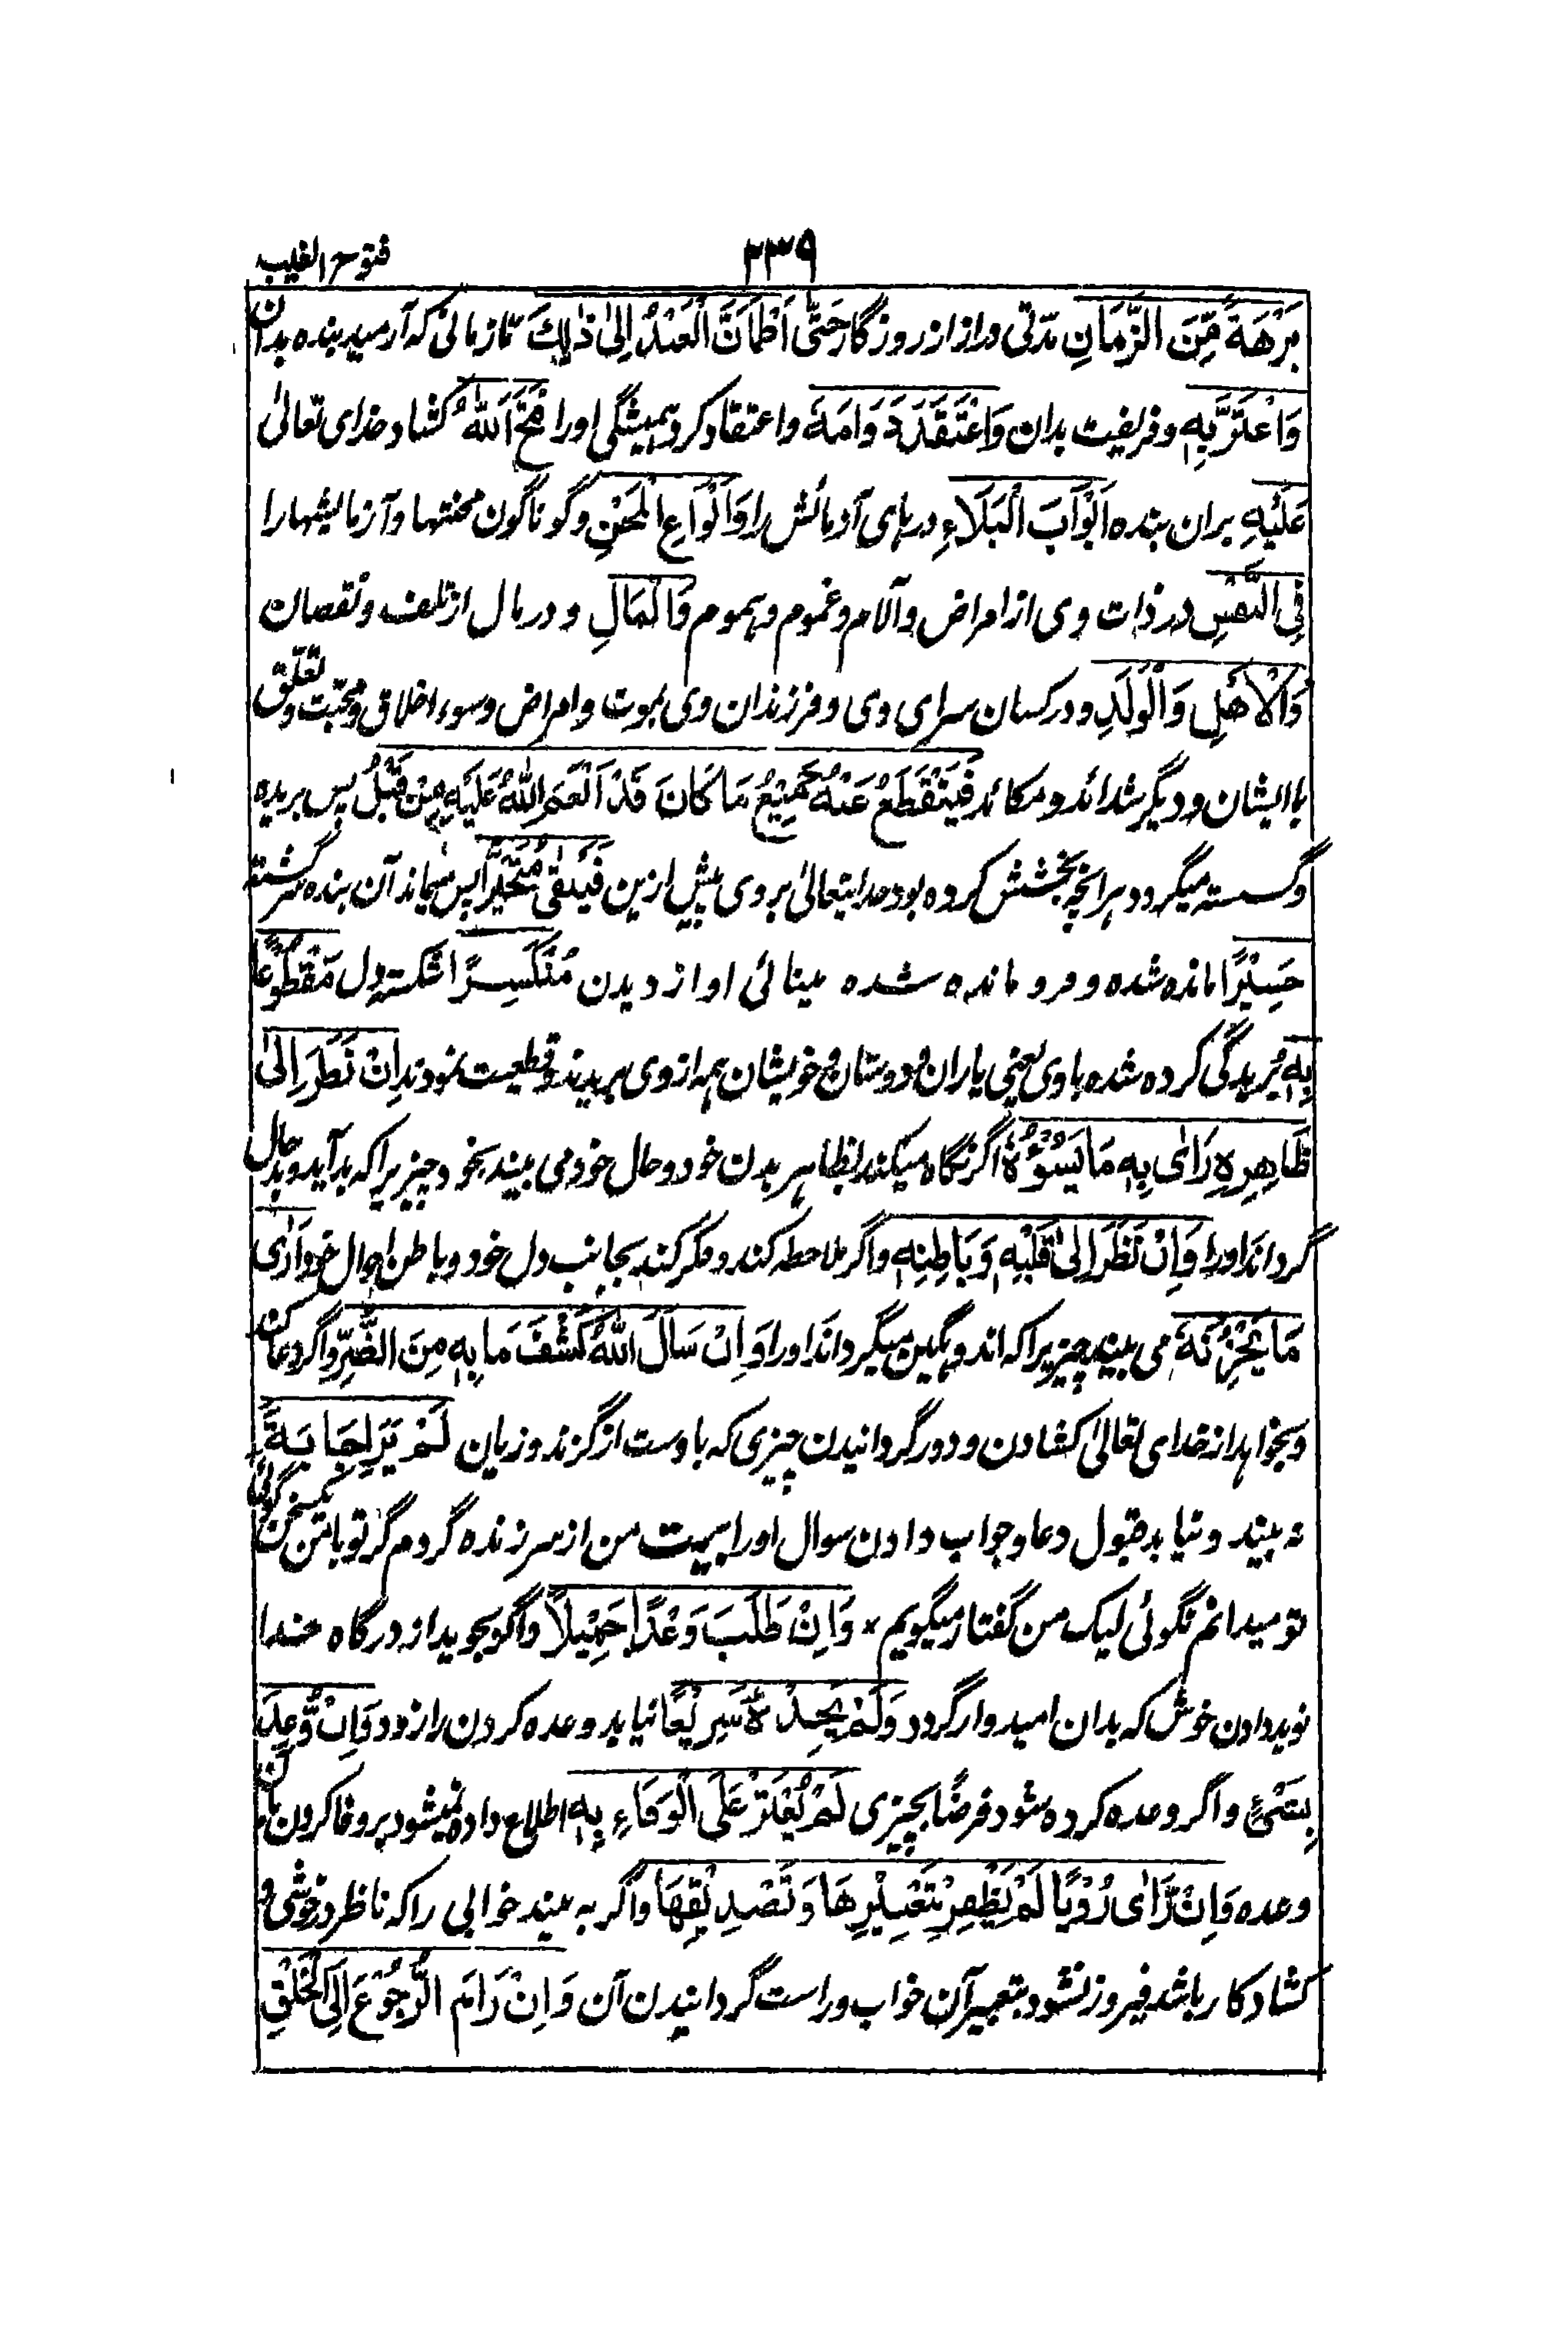 ۳۳۹ فتوح الغیب
بُرْهَةً مِّنَ الزَّمَانِ مدّتی دراز از روزگار حَتَّى اطْمَأَنَّ الْعَبْدُ اِلٰى ذٰلِكَ تا زمانی که آرمید بنده بدان
وَاغْتَرَّ بِهٖ و فریفت بدان وَاعْتَقَدَ دَوَامَهٗ و اعتقاد کرد همیشگی او را فَتَحَ اللّٰهُ کشاد خدای تعالیٰ
عَلَيْهِ بران بنده اَبْوَابَ الْبَلَاءِ درهای آزمائش را وَاَنْوَاعِ الْمِحَنِ و گوناگون محنتها و آزمایشها را
فِي النَّفْسِ در ذات وی از امراض و آلام و غموم و هموم وَالْمَالِ و در مال از تلف و نقصان
وَالْاَهْلِ وَالْوَلَدِ و در کسان سرای وی و فرزندان وی بموت و امراض و سوء اخلاق و محبّت و تعلّق
با ایشان و دیگر شدائد و مکائد فَيَنْقَطِعُ عَنْهُ جَمِيْعُ مَا كَانَ قَدْ اَنْعَمَ اللّٰهُ عَلَيْهِ مِنْ قَبْلُ پس بریده
و گسسته میگردد هرانچه بخشش کرده بود خدایتعالیٰ بر وی پیش ازین فَيَبْقٰى مُتَحَيِّرًا پس میماند آن بنده سرگشته
حَسِيْرًا مانده شده و فرو مانده شده بینائی او از دیدن مُنْكَسِرًا شکسته دل مَقْطُوْعًا
بِهٖ بُریدگی کرده شده با وی یعنی یاران و دوستان و خویشان همه از وی ببریدند و قطیعت نمودند اِنْ نَظَرَ اِلٰى
ظَاهِرِهٖ رَاٰى بِهٖ مَا يَسُوْءُهٗ اگر نگاه میکند بظاهر بدن خود و حال خود می بیند بخود چیزیرا که بد آید و بد حال
گرداند او را وَاِنْ نَظَرَ اِلٰى قَلْبِهٖ وَبَاطِنِهٖ و اگر ملاحظه کند و فکر کند بجانب دل خود و باطن احوال خود رَاٰى
مَا يَحْزُنُهٗ می بیند چیزیرا که اندوهگین میگرداند او را وَاِنْ سَاَلَ اللّٰهَ كَشْفَ مَا بِهٖ مِنَ الضُّرِّ و اگر دعا کند
و بخواهد از خدای تعالیٰ کشادن و دور گردانیدن چیزی که با وست از گزند و زیان لَمْ يَرَ اِجَابَةً
نه بیند و نیابد قبول دعا و جواب دادن سوال او را بیت من از سر زنده گردم گر تو با من یک سخن گوئی
تو میدانم نگوئی لیک من گفتار میگویم × وَاِنْ طَلَبَ وَعْدًا جَمِيْلًا و اگر بجوید از درگاه خدا
نوید دادن خوش که بدان امیدوار گردد وَلَمْ يَجِدْهُ سَرِيْعًا نیابد وعده کردن را زود وَاِنْ وُّعِدَ
بِشَیْءٍ و اگر وعده کرده شود فرضًا بچیزی لَمْ يُعْثَرْ عَلَى الْوَفَاءِ بِهٖ اطلاع داده نمیشود بر وفا کردن بآن
وعده وَاِنْ رَّاٰى رُؤْيًا لَمْ يَظْفِرْ بِتَعْبِيْرِهَا وَتَصْدِيْقِهَا و اگر به بیند خوابی را که ناظر در خوشی و
کشاد کار باشد فیروز نشود بتعبیر آن خواب و راست گردانیدن آن وَاِنْ رَامَ الرُّجُوْعَ اِلَى الْخَلْقِ